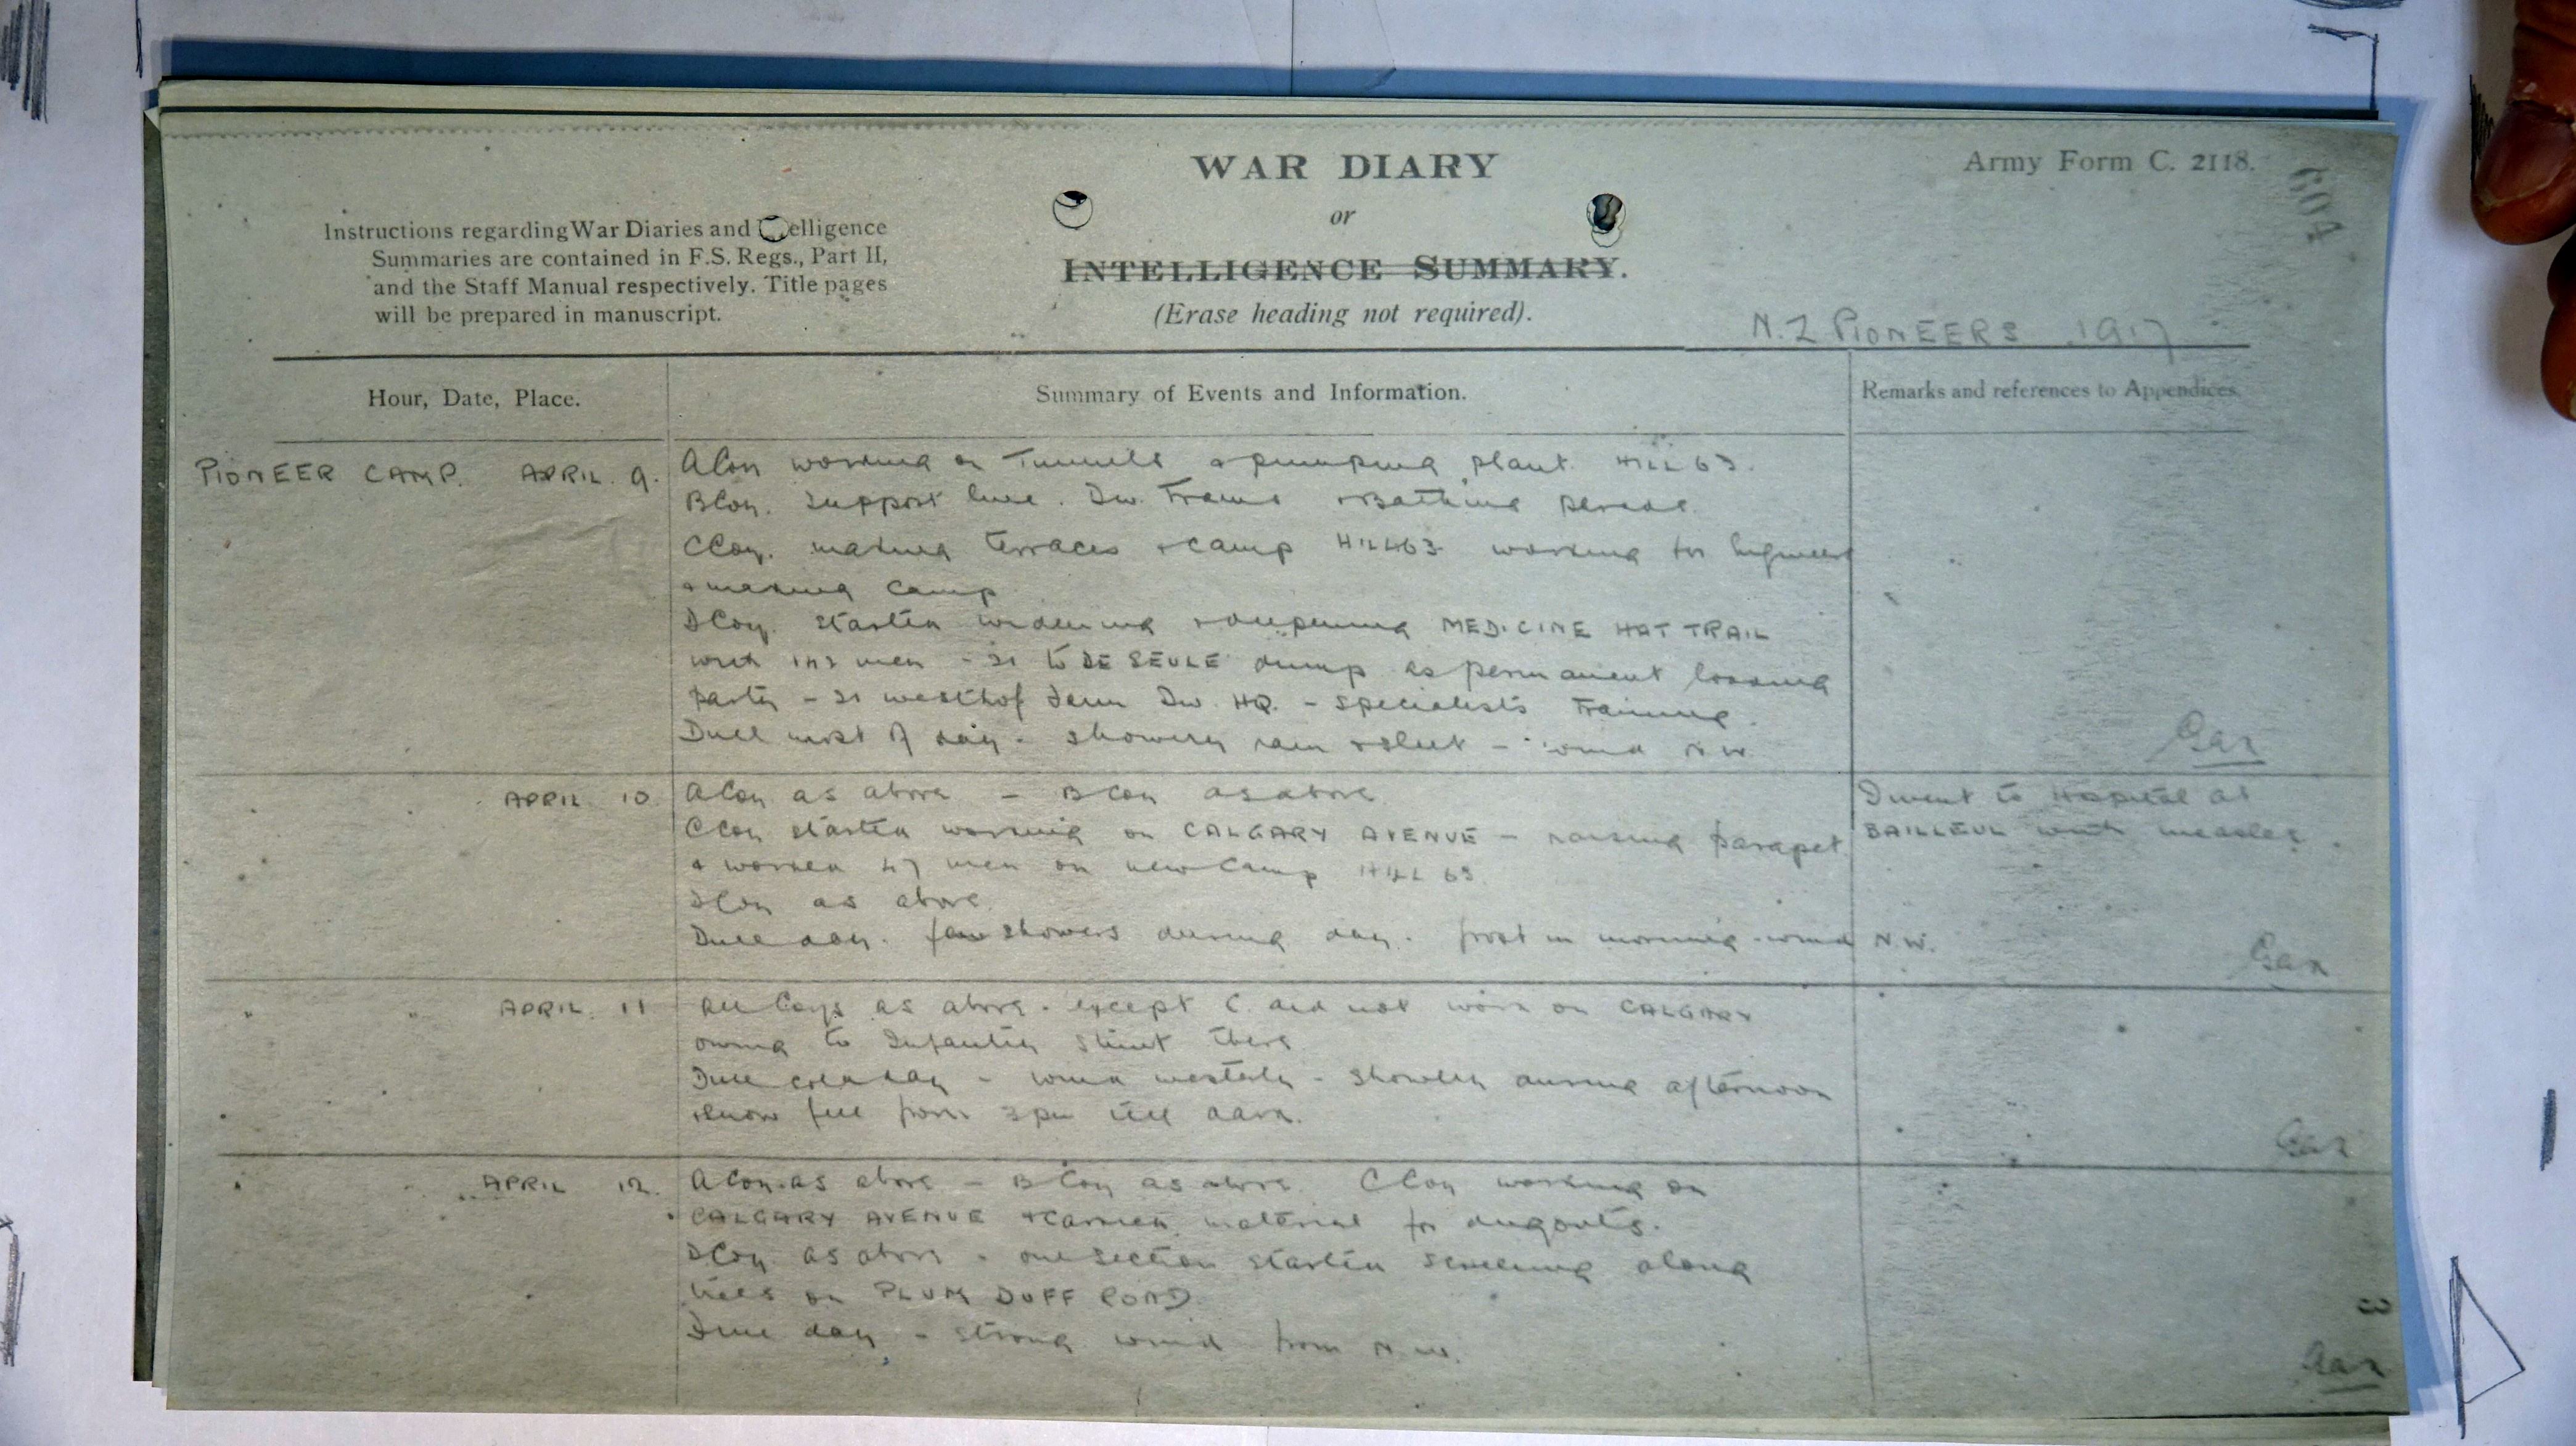 WAR DIARY
or
INTELLIGENCE SUMMARY.
(Erase heading not required).
Army Form C. 2118.
Instructions regarding War Diaries and elligence
Summaries are contained in F.S. Regs., Part II,
and the Staff Manual respectively. Title pages
will be prepared in manuscript.
N.Z PIONEERS 1917
Hour, Date, Place.
Summary of Events and Information.
Remarks and references to Appendices.
PIONEER CAMP. APRIL. 9.
A Coy working on Tunnels & pumping plant. HILL 63.
B Coy. Support line. Div. Trams & Bathing parade.
C Coy. making terraces & camp HILL 63 working for Engineers
& making camp
D Coy. started widening & deepening MEDICINE HAT TRAIL
with men - 21 to DE SEULE dump as permanent loading
party - 21 westhof Farm Div. HQ. - specialists Training.
Dull most of day. showery rain & sleet - wind N W.
APRIL 10
A Coy as above - B Coy as above
C Coy started working on CALGARY AVENUE - raising parapet
& worked 47 men on new Camp HILL 63.
D Coy as above.
Dull day. few showers during day. frost in morning. wind N.W.
I went to Hospital at
BAILLEUL with measles.
" " APRIL. 11
All Coys as above. except C. did not work on CALGARY
owing to Infantry stunt there
Dull cold day - wind westerly - showery during afternoon
& snow fell from 3pm till dark.
" " APRIL 12.
A Coy. as above - B Coy as above C Coy working on
CALGARY AVENUE & carried material for dugouts.
D Coy. as above - one section started screening along
trees on PLUM DUFF ROAD
Fine day - strong wind from N.W.
3